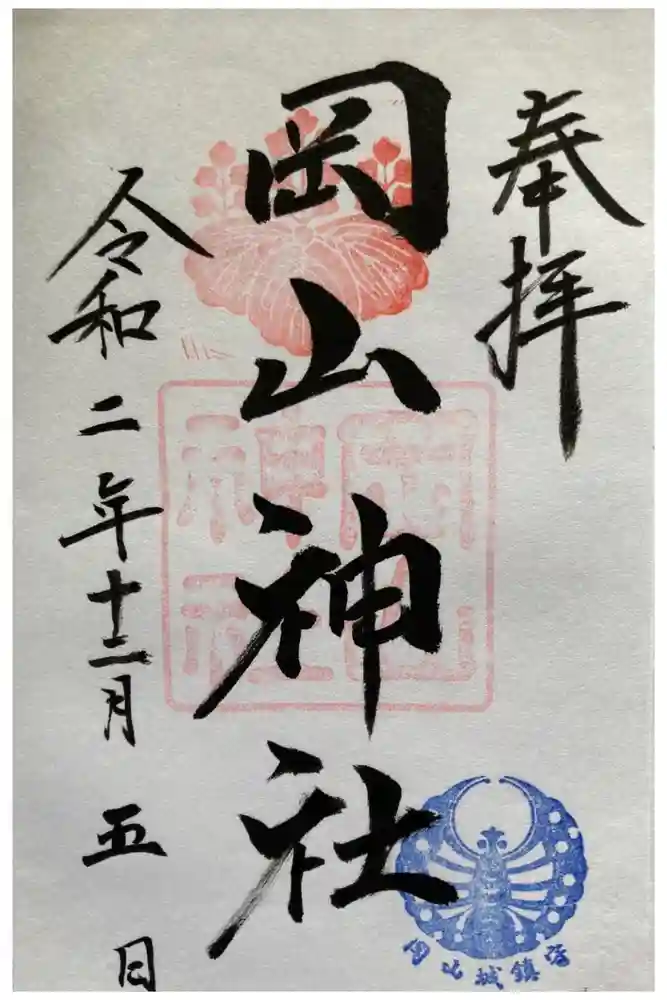 奉拝
岡山神社
令和二年十二月五日
岡山神社
岡山城鎮守